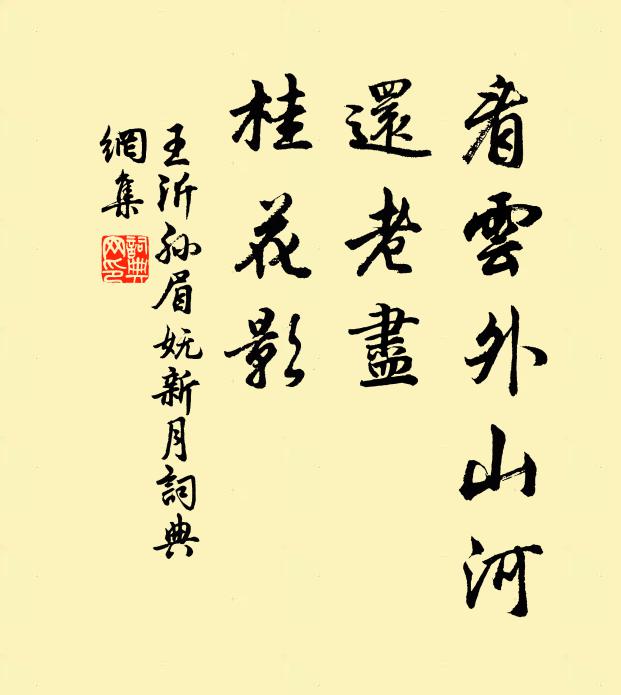 看雲外山河
還老盡
桂花影
王沂孙眉妩新月詞典
網集
詞典
网印